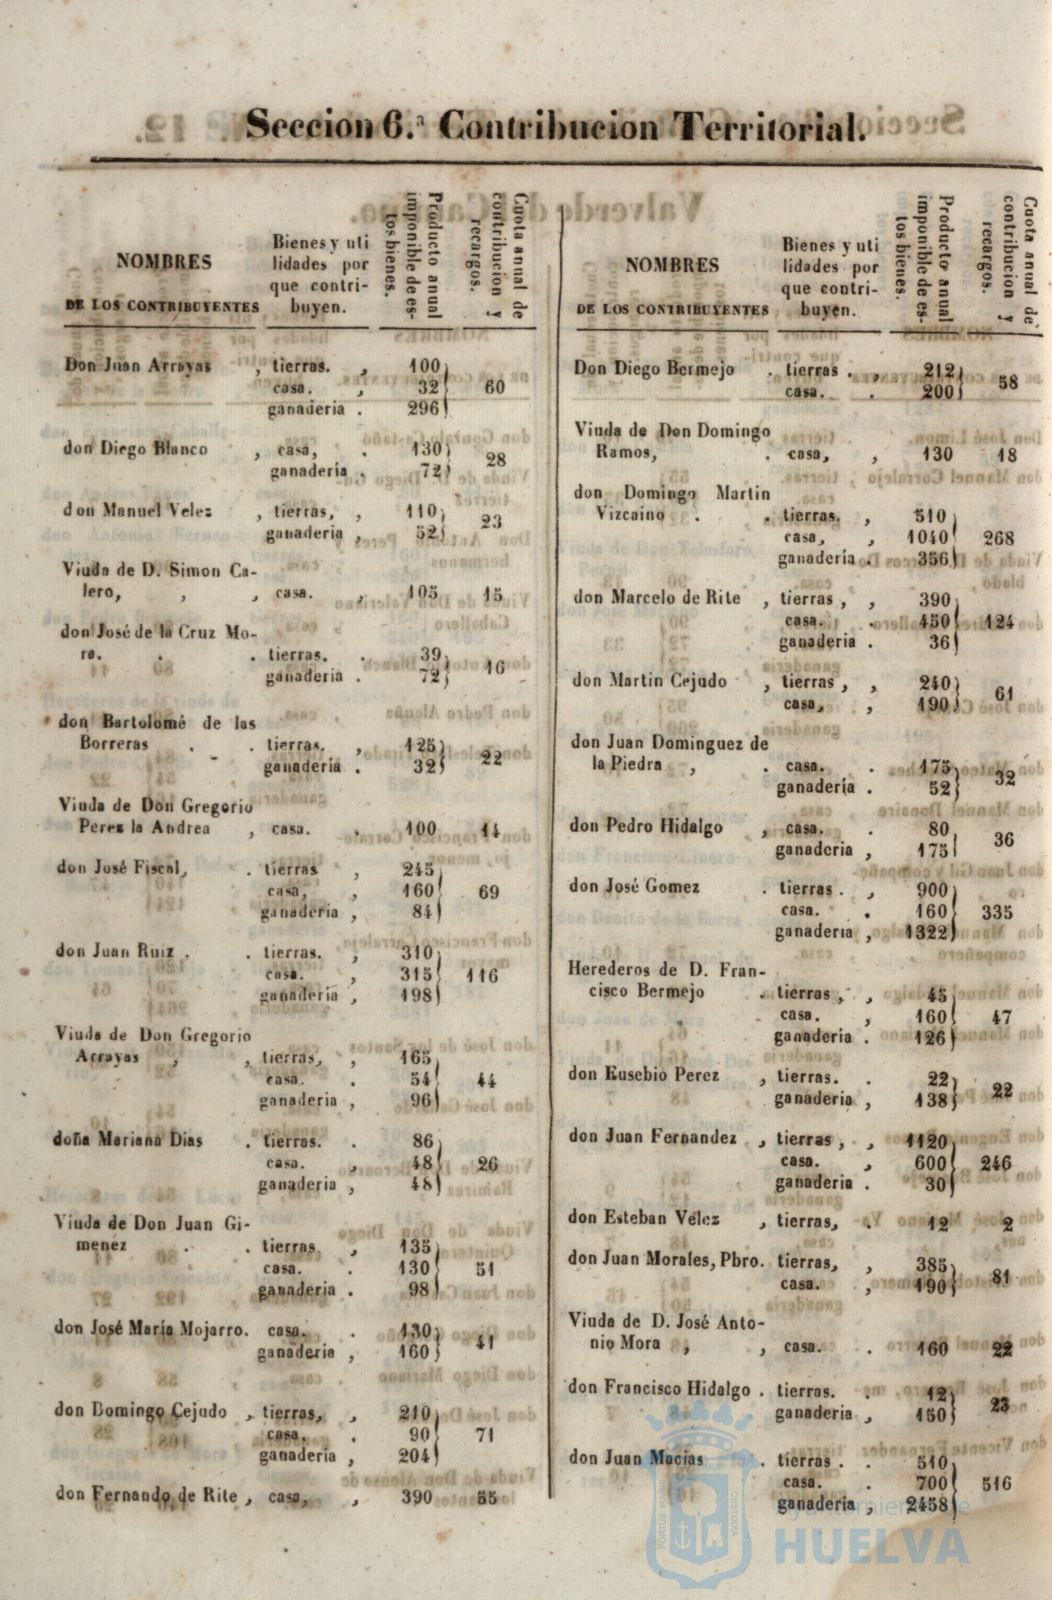 Seccion 6.ª Contribucion Territorial.
NOMBRES
DE LOS CONTRIBUYENTES
Bienes y uti
lidades por
que contri-
buyen.
Producto anual
imponible de es-
tos bienes.
Cuota anual de
contribucion y
recargos.
Don Juan Arrayas , tierras. , 100
casa. , 32 60
ganaderia . 296
don Diego Blanco , casa, . 130
ganaderia . 72 28
don Manuel Velez , tierras, , 110
ganaderia , 52 23
Viuda de D. Simon Ca-
lero, , , casa. , 105 15
don José de la Cruz Mo-
ra. . . tierras. . 39
ganaderia . 72 16
don Bartolomé de las
Borreras . . tierras. , 125
ganaderia . 32 22
Viuda de Don Gregorio
Perez la Andrea , casa. . 100 14
don José Fiscal, . tierras , 245
casa, , 160 69
ganaderia , 84
don Juan Ruiz . . tierras. , 310
casa. , 315 116
ganaderia , 198
Viuda de Don Gregorio
Arrayas , , tierras, , 165
casa. . 54 44
ganaderia , 96
doña Mariana Dias . tierras. . 86
casa. , 48 26
ganaderia , 48
Viuda de Don Juan Gi-
menez . . tierras , 135
casa. . 130 51
ganaderia . 98
don José Maria Mojarro. casa. . 130
ganaderia , 160 41
don Domingo Cejudo , tierras, , 210
casa. . 90 71
ganaderia , 204
don Fernando de Rite , casa, , 390 55
NOMBRES
DE LOS CONTRIBUYENTES
Bienes y uti
lidades por
que contri-
buyen.
Producto anual
imponible de es-
tos bienes.
Cuota anual de
contribucion y
recargos.
Don Diego Bermejo . tierras . , 212
casa. . 200 58
Viuda de Don Domingo
Ramos, . casa, , 130 18
don Domingo Martin
Vizcaino . . tierras. , 510
casa, , 1040 268
ganadería . 356
don Marcelo de Rite , tierras , , 390
casa. . 450 124
ganaderia . 36
don Martin Cejudo , tierras , , 240
casa, , 190 61
don Juan Dominguez de
la Piedra , . casa. . 175
ganadería . 52 32
don Pedro Hidalgo , casa. . 80
ganaderia , 175 36
don José Gomez . tierras . , 900
casa. . 160 335
ganaderia , 1322
Herederos de D. Fran-
cisco Bermejo . tierras , , 45
casa. , 160 47
ganadería . 126
don Eusebio Perez , tierras. . 22
ganaderia , 138 22
don Juan Fernandez , tierras , , 1120
casa. , 600 246
ganaderia . 30
don Esteban Velez , tierras, . 12 2
don Juan Morales, Pbro. tierras, , 385
casa. , 190 81
Viuda de D. José Anto-
nio Mora , , casa. . 160 22
don Francisco Hidalgo . tierras. . 12
ganaderia , 150 23
don Juan Macias . tierras . . 510
casa. . 700 516
ganaderia , 2458
Ayuntamiento de
HUELVA